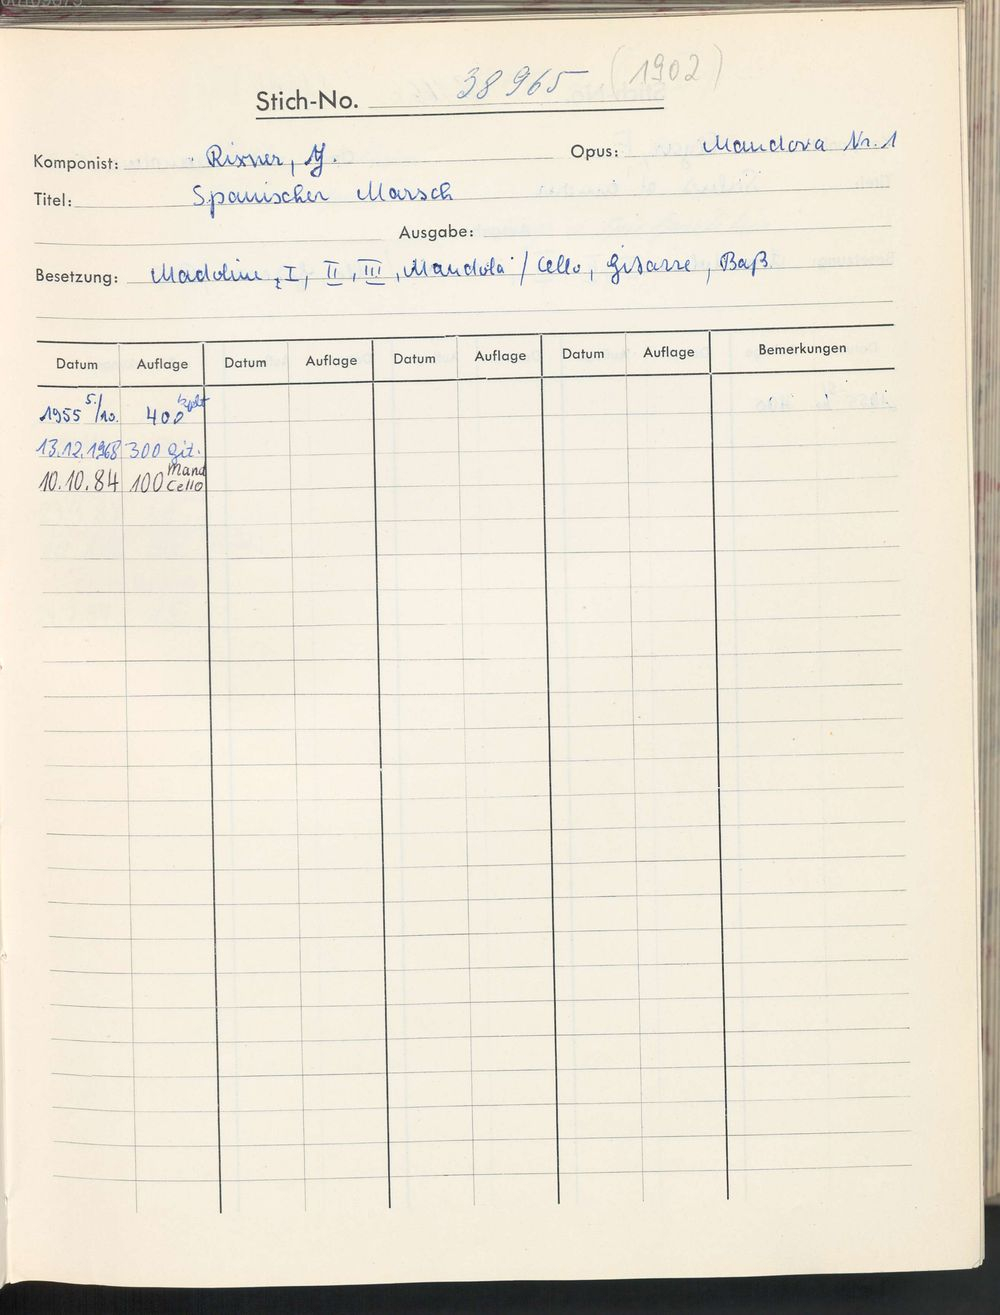 Stich-No. 38965 (1902)
Komponist: Rixner, J. Opus: Mandova Nr. 1
Titel: Spanischer Marsch
Ausgabe:
Besetzung: Madoline, I, II, III, Mandola / Cello, Gitarre, Baß
Datum Auflage Datum Auflage Datum Auflage Datum Auflage Bemerkungen
1955 5./10. 400 kplt
13.12.1968 300 Git.
10.10.84 100 Mand Cello